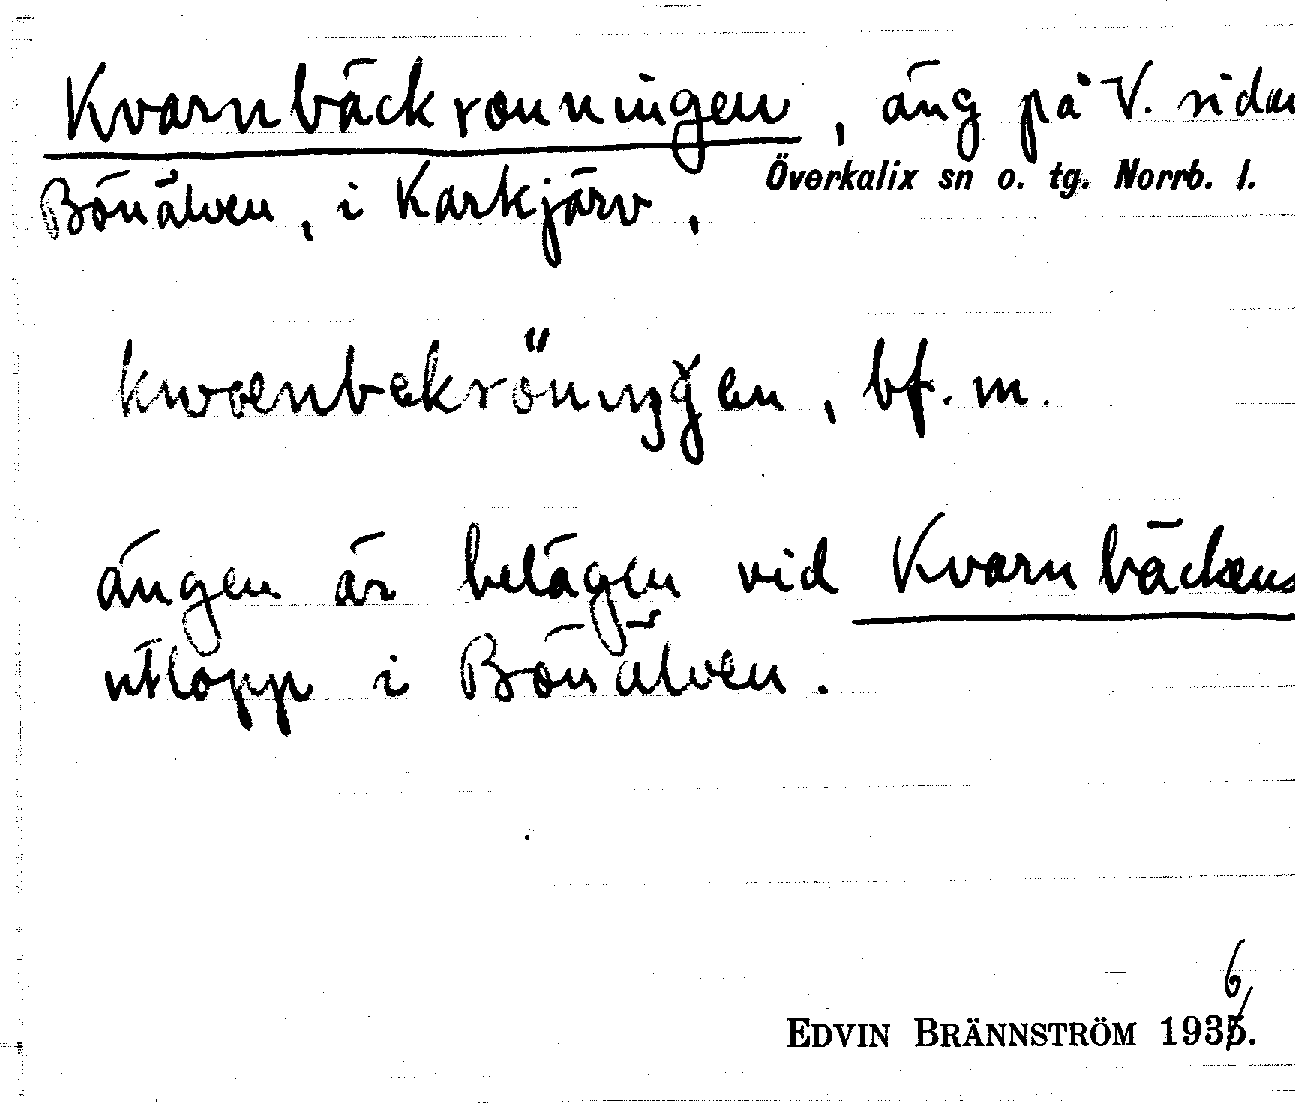 Kvarnbäckrönningen, äng på V. sidan
Överkalix sn o. tg. Norrb. l.
Bönälven, i Karkjärv,
bf. m.
ängen är belägen vid Kvarnbäckens
utlopp i Bönälven.
6
EDVIN BRÄNNSTRÖM 1935.